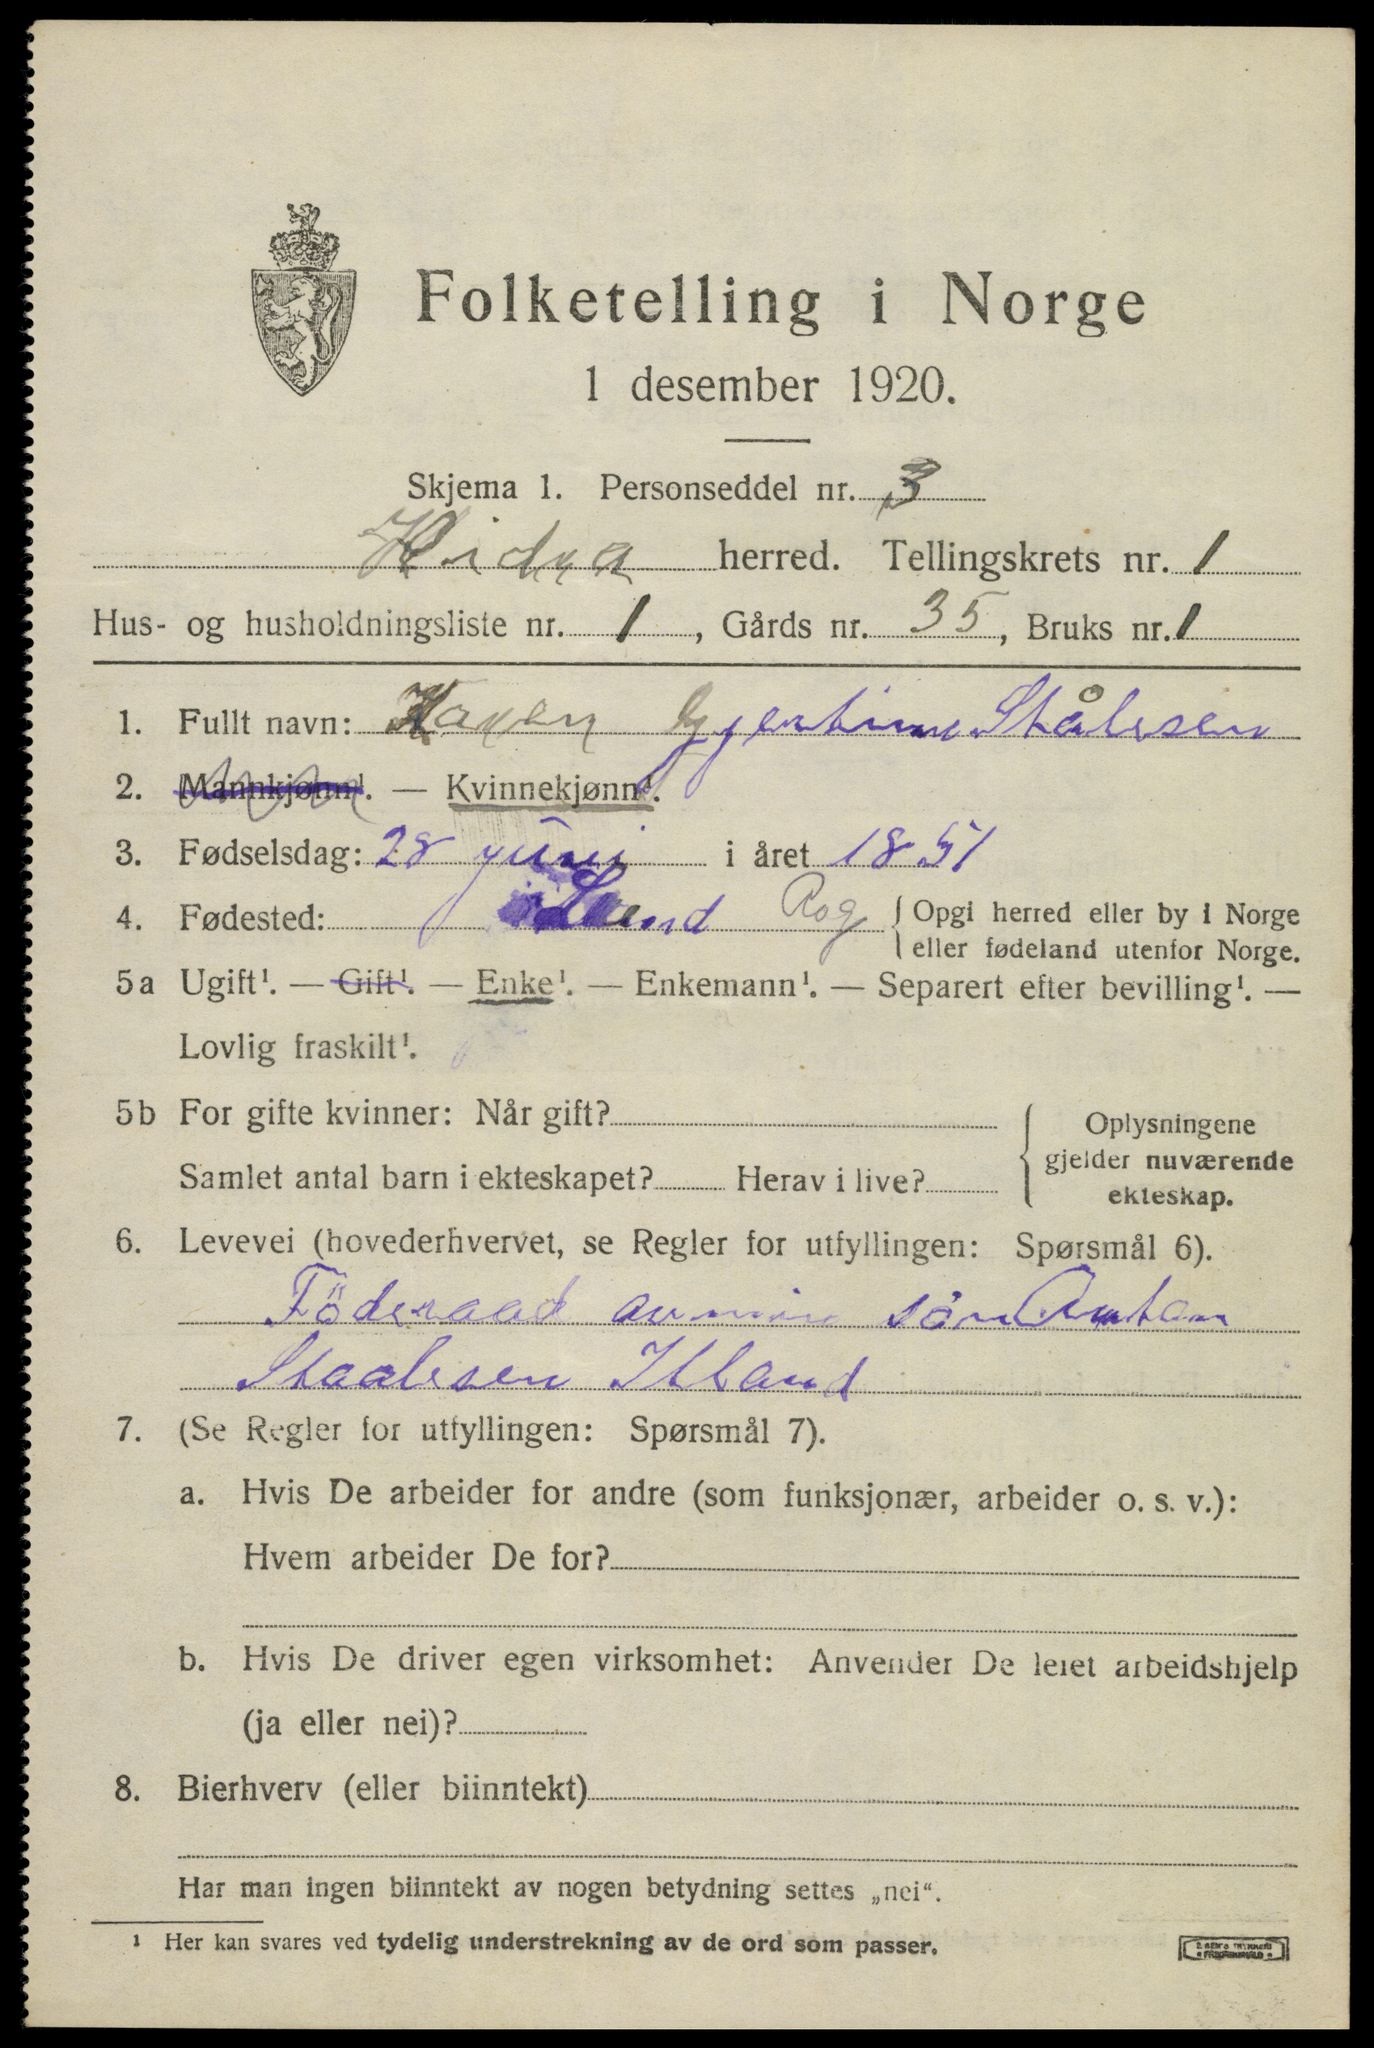 Folketelling i Norge
1 desember 1920.
Skjema 1. Personseddel nr. 3
Hidra herred. Tellingskrets nr. 1
Hus- og husholdningsliste nr. 1, Gårds nr. 35, Bruks nr. 1
1. Fullt navn: Karen Gjertine Stålesen
2. Mannkjønn¹. — Kvinnekjønn¹.
3. Fødselsdag: 28 juni i året 1851
4. Fødested: Lund Rog { Opgi herred eller by i Norge
eller fødeland utenfor Norge.
5a Ugift¹. — Gift¹. — Enke¹. — Enkemann¹. — Separert efter bevilling¹. —
Lovlig fraskilt¹.
5b For gifte kvinner: Når gift?
Samlet antal barn i ekteskapet? Herav i live?
{ Oplysningene
gjelder nuværende
ekteskap.
6. Levevei (hovederhvervet, se Regler for utfyllingen: Spørsmål 6).
Föderaad av min sön Anton
Staalesen Itland
7. (Se Regler for utfyllingen: Spørsmål 7).
a. Hvis De arbeider for andre (som funksjonær, arbeider o. s. v.):
Hvem arbeider De for?
b. Hvis De driver egen virksomhet: Anvender De leiet arbeidshjelp
(ja eller nei)?
8. Bierhverv (eller biinntekt)
Har man ingen biinntekt av nogen betydning settes „nei“.
¹ Her kan svares ved tydelig understrekning av de ord som passer.